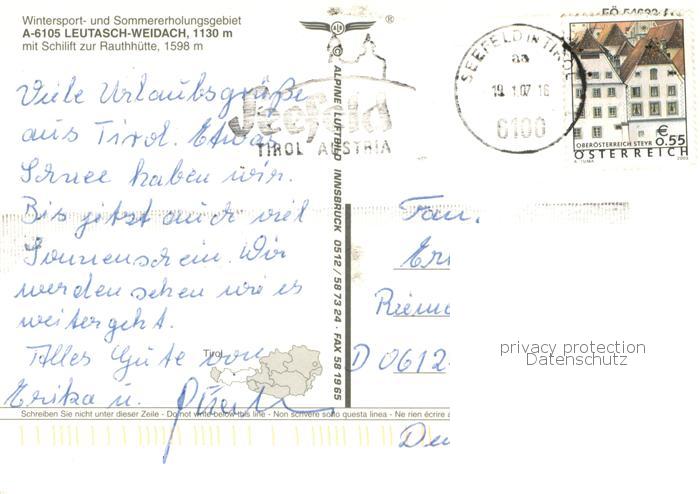 Wintersport- und Sommererholungsgebiet
A-6105 LEUTASCH-WEIDACH, 1130 m
mit Schilift zur Rauthhütte, 1598 m
Viele Urlaubsgrüße
aus Tirol. Etwas
Schnee haben wir.
Bis jetzt auch viel
Sonnenschein. Wir
werden sehen wie es
weitergeht.
Alles Gute von
Erika u.
Tirol
Schreiben Sie nicht unter dieser Zeile - Do not write below this line - Non scrivere sotto questa linea - Ne rien écrire
®
© ALPINE LUFTBILD INNSBRUCK 0512 / 58 73 24 · FAX 58 19 65
Seefeld
TIROL AUSTRIA
SEEFELD IN TIROL
aa
19.1.07 16
6100
€
0.55
OBERÖSTERREICH STEYR
ÖSTERREICH
A. TUMA 2003
Fam.
D 0612
privacy protection
Datenschutz